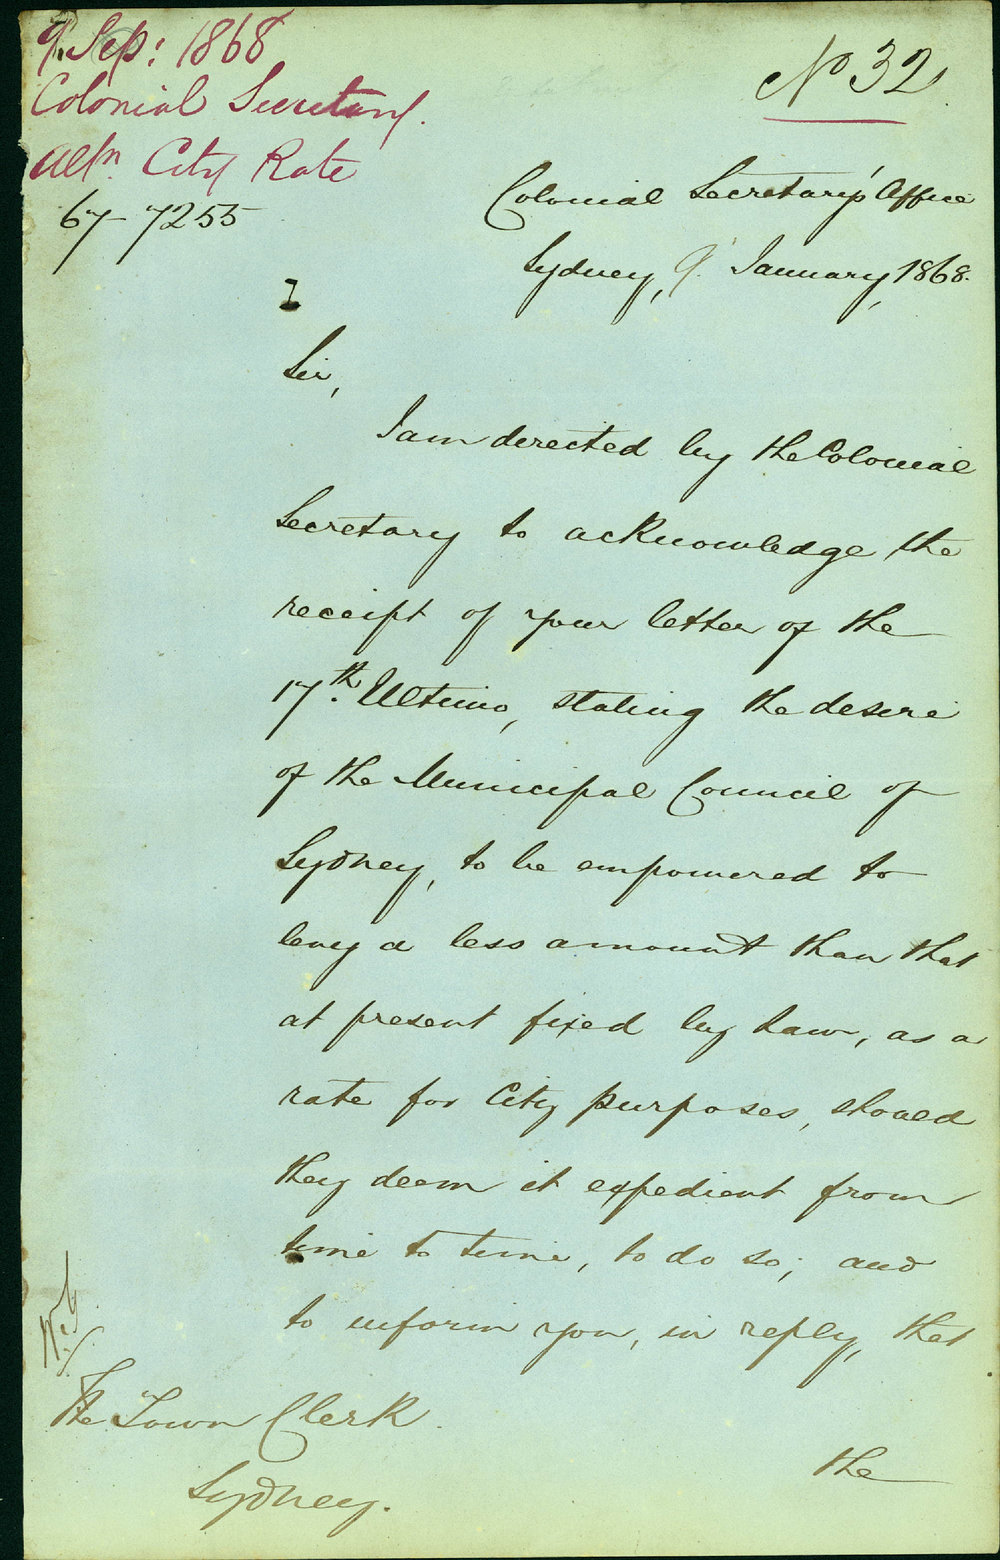 9. Sep: 1868
Colonial Secretary.
Altn. City Rate
67-7255
No 32
Colonial Secretary's Office
Sydney, 9. January, 1868.
Sir,
I am directed by the Colonial
Secretary to acknowledge the
receipt of your letter of the
17th. Ultimo, stating the desire
of the Municipal Council of
Sydney, to be empowered to
levy a less amount than that
at present fixed by Law, as a
rate for City purposes, should
they deem it expedient from
time to time, to do so; and
to inform you, in reply, that
The Town Clerk
Sydney.
the